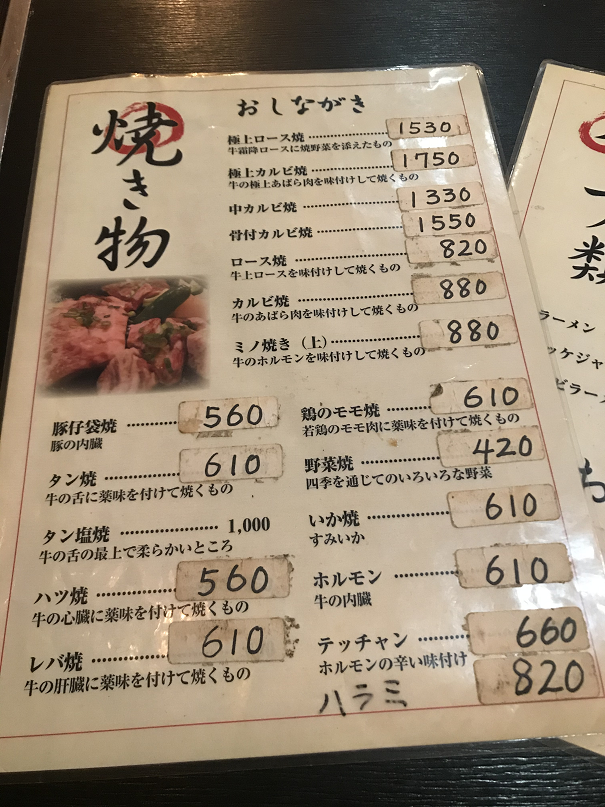 焼き物
おしながき
極上ロース焼 1530
牛霜降ロースに焼野菜を添えたもの
極上カルビ焼 1750
牛の極上あばら肉を味付けして焼くもの
中カルビ焼 1330
骨付カルビ焼 1550
ロース焼 820
牛上ロースを味付けして焼くもの
カルビ焼 880
牛のあばら肉を味付けして焼くもの
ミノ焼き（上） 880
牛のホルモンを味付けして焼くもの
豚仔袋焼 560
豚の内臓
タン焼 610
牛の舌に薬味を付けて焼くもの
タン塩焼 1,000
牛の舌の最上で柔らかいところ
ハツ焼 560
牛の心臓に薬味を付けて焼くもの
レバ焼 610
牛の肝臓に薬味を付けて焼くもの
鶏のモモ焼 610
若鶏のモモ肉に薬味を付けて焼くもの
野菜焼 420
四季を通じてのいろいろな野菜
いか焼 610
すみいか
ホルモン 610
牛の内臓
テッチャン 660
ホルモンの辛い味付け
ハラミ 820
類
ラーメン
ッケジャ
ビラーメ
ち